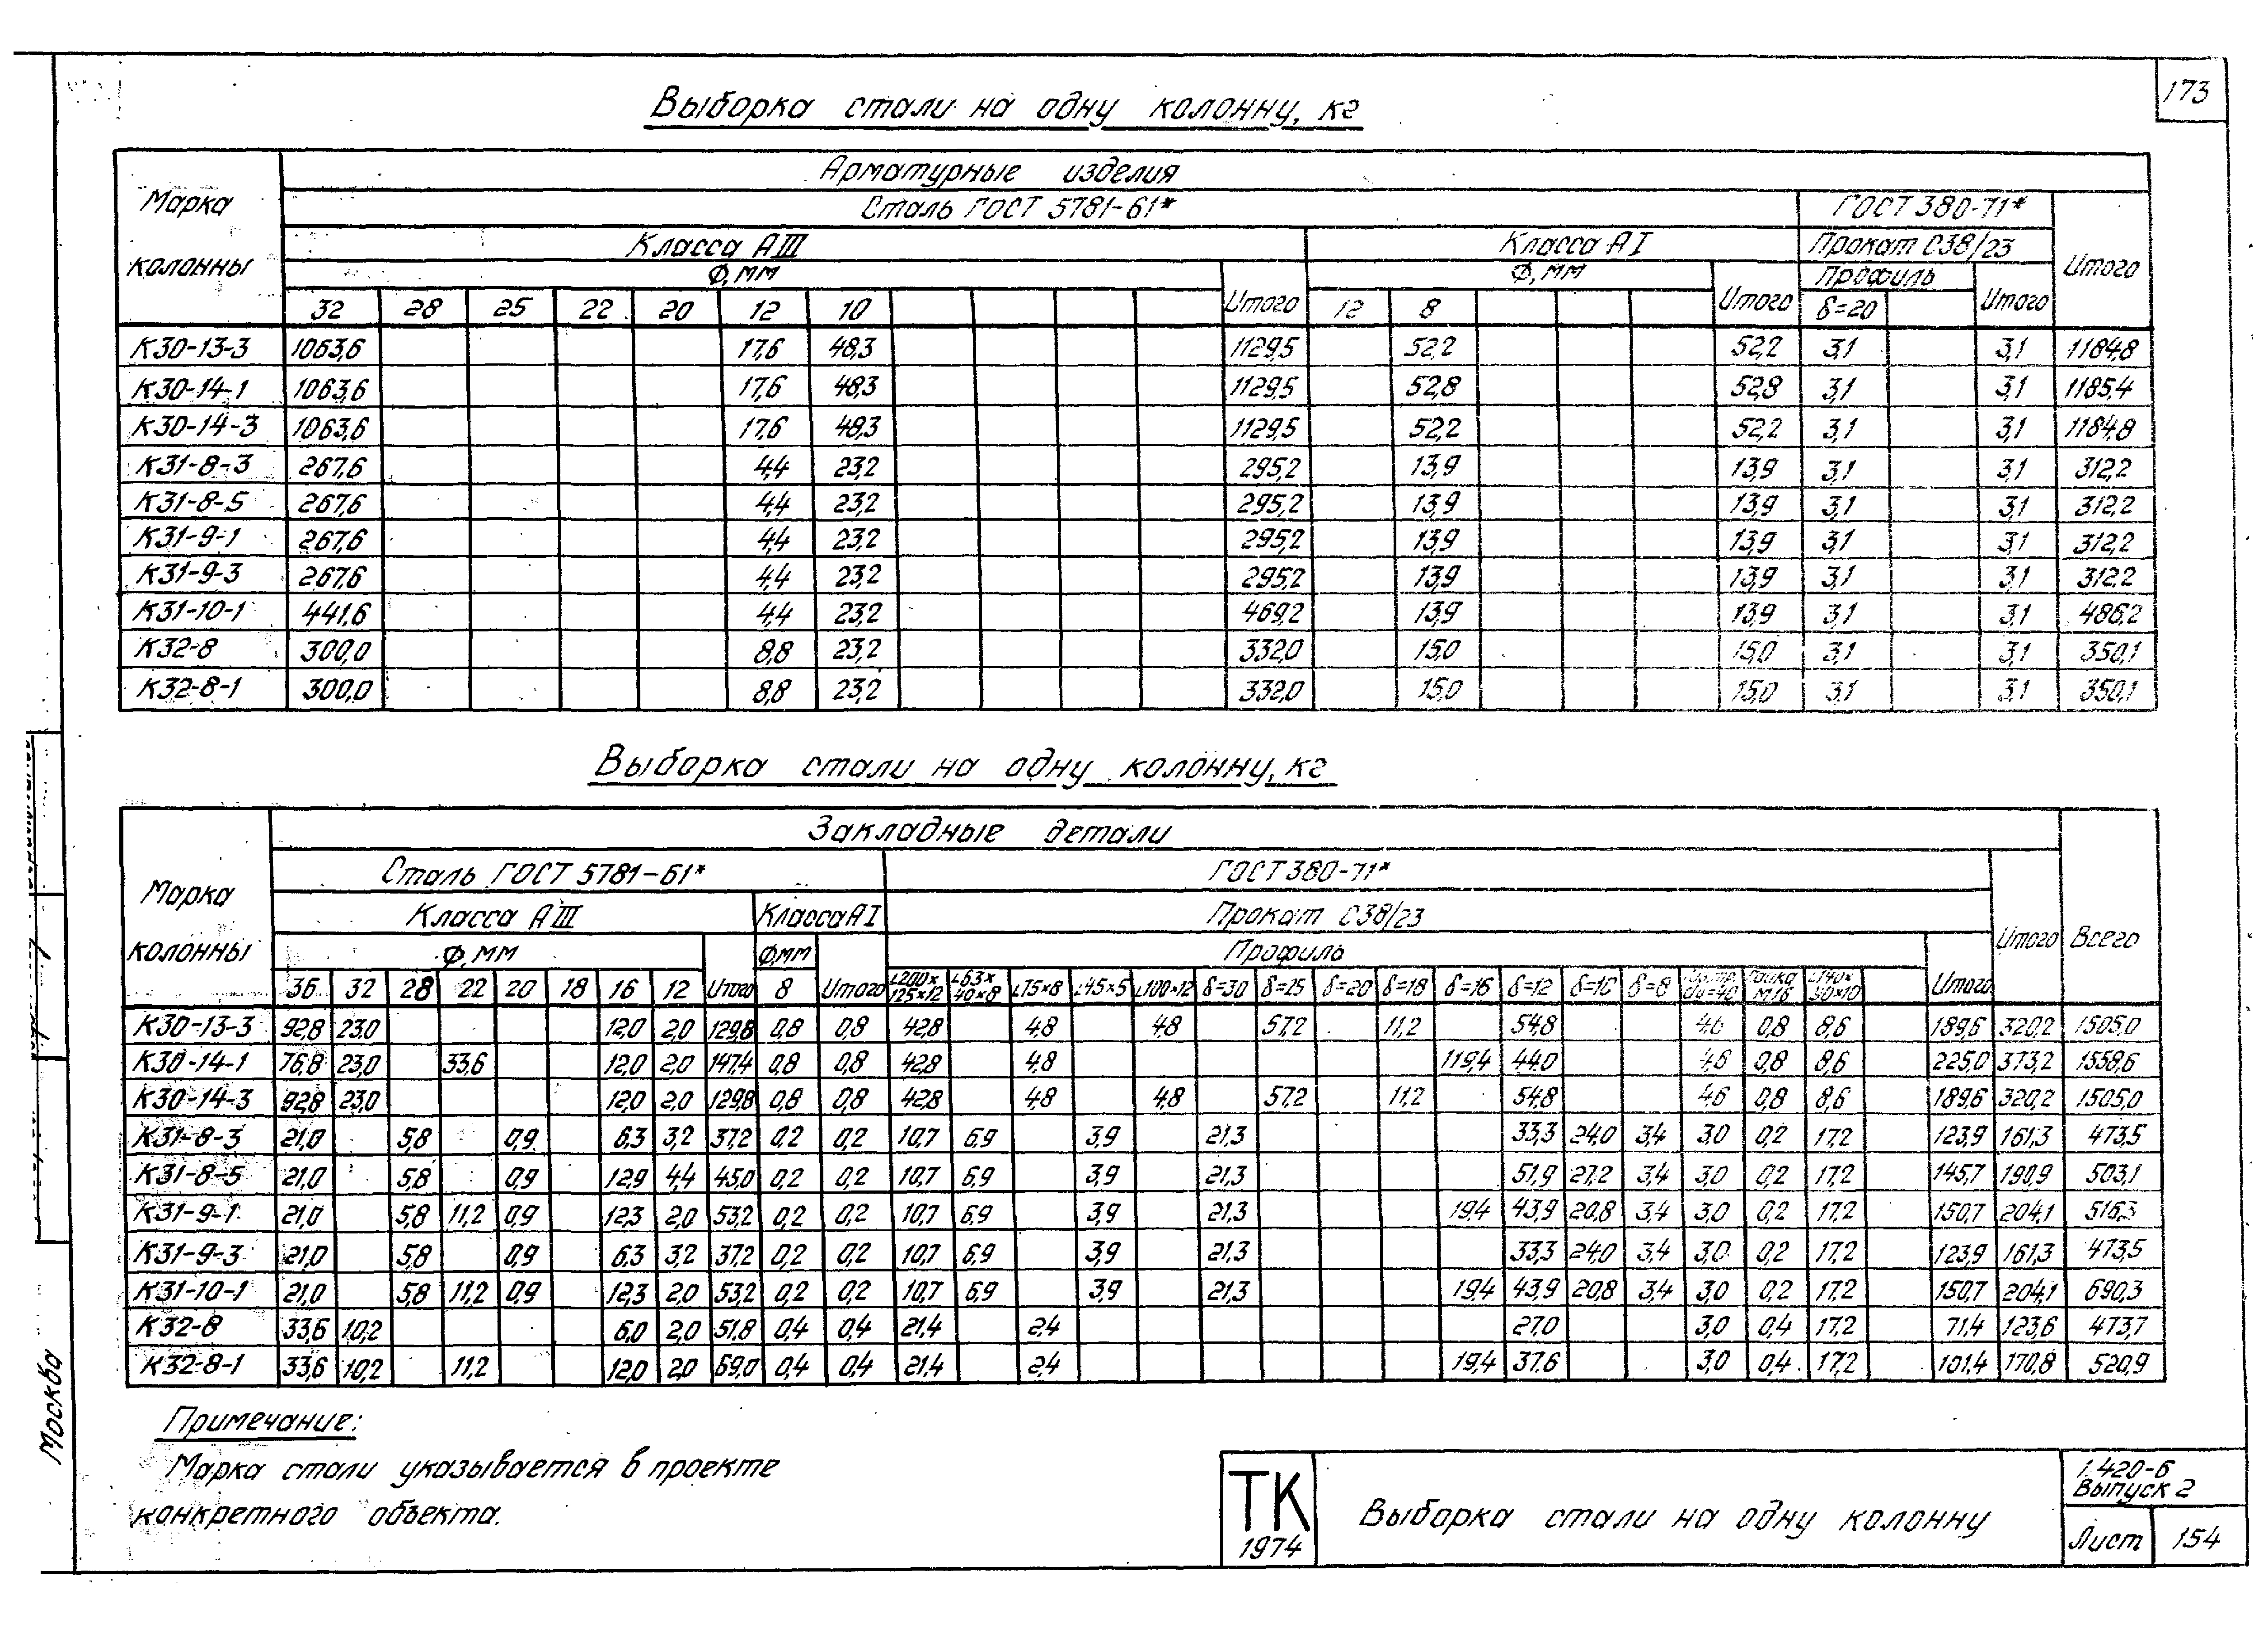 173
Выборка стали на одну колонну, кг
Марка колонны
Арматурные изделия
Сталь ГОСТ 5781-61* ГОСТ 380-71* Итого
Класса АIII Класса АI Прокат С38/23
Ф, мм Итого Ф, мм Итого Профиль Итого
32 28 25 22 20 12 10 12 8 δ=20
К30-13-3 1063,6 17,6 48,3 1129,5 52,2 52,2 3,1 3,1 1184,8
К30-14-1 1063,6 17,6 48,3 1129,5 52,8 52,8 3,1 3,1 1185,4
К30-14-3 1063,6 17,6 48,3 1129,5 52,2 52,2 3,1 3,1 1184,8
К31-8-3 267,6 4,4 23,2 295,2 13,9 13,9 3,1 3,1 312,2
К31-8-5 267,6 4,4 23,2 295,2 13,9 13,9 3,1 3,1 312,2
К31-9-1 267,6 4,4 23,2 295,2 13,9 13,9 3,1 3,1 312,2
К31-9-3 267,6 4,4 23,2 295,2 13,9 13,9 3,1 3,1 312,2
К31-10-1 441,6 4,4 23,2 469,2 13,9 13,9 3,1 3,1 486,2
К32-8 300,0 8,8 23,2 332,0 15,0 15,0 3,1 3,1 350,1
К32-8-1 300,0 8,8 23,2 332,0 15,0 15,0 3,1 3,1 350,1
Выборка стали на одну колонну, кг
Марка колонны
Закладные детали Всего
Сталь ГОСТ 5781-61* ГОСТ 380-71* Итого
Класса АIII Класса АI Прокат С38/23
Ф, мм Итого Ф,мм Итого Профиль Итого
36 32 28 22 20 18 16 12 8 ∟200×125×12 ∟63×40×8 ∟75×8 ∟45×5 ∟100×12 δ=30 δ=25 δ=20 δ=18 δ=16 δ=12 δ=10 δ=8 Гайка М16 ∟140×90×10
К30-13-3 92,8 23,0 12,0 2,0 129,8 0,8 0,8 42,8 4,8 4,8 57,2 11,2 54,8 4,6 0,8 8,6 189,6 320,2 1505,0
К30-14-1 76,8 23,0 33,6 12,0 2,0 147,4 0,8 0,8 42,8 4,8 119,4 44,0 4,6 0,8 8,6 225,0 373,2 1558,6
К30-14-3 92,8 23,0 12,0 2,0 129,8 0,8 0,8 42,8 4,8 4,8 57,2 11,2 54,8 4,6 0,8 8,6 189,6 320,2 1505,0
К31-8-3 21,0 5,8 0,9 6,3 3,2 37,2 0,2 0,2 10,7 6,9 3,9 21,3 33,3 24,0 3,4 3,0 0,2 17,2 123,9 161,3 473,5
К31-8-5 21,0 5,8 0,9 12,9 4,4 45,0 0,2 0,2 10,7 6,9 3,9 21,3 51,9 27,2 3,4 3,0 0,2 17,2 145,7 190,9 503,1
К31-9-1 21,0 5,8 11,2 0,9 12,3 2,0 53,2 0,2 0,2 10,7 6,9 3,9 21,3 19,4 43,9 20,8 3,4 3,0 0,2 17,2 150,7 204,1 516,3
К31-9-3 21,0 5,8 0,9 6,3 3,2 37,2 0,2 0,2 10,7 6,9 3,9 21,3 33,3 24,0 3,4 3,0 0,2 17,2 123,9 161,3 473,5
К31-10-1 21,0 5,8 11,2 0,9 12,3 2,0 53,2 0,2 0,2 10,7 6,9 3,9 21,3 19,4 43,9 20,8 3,4 3,0 0,2 17,2 150,7 204,1 690,3
К32-8 33,6 10,2 6,0 2,0 51,8 0,4 0,4 21,4 2,4 27,0 3,0 0,4 17,2 71,4 123,6 473,7
К32-8-1 33,6 10,2 11,2 12,0 2,0 69,0 0,4 0,4 21,4 2,4 19,4 37,6 3,0 0,4 17,2 101,4 170,8 520,9
Примечание:
Марка стали указывается в проекте
конкретного объекта.
Москва
ТК
1974
Выборка стали на одну колонну
1.420-6
Выпуск 2
Лист 154